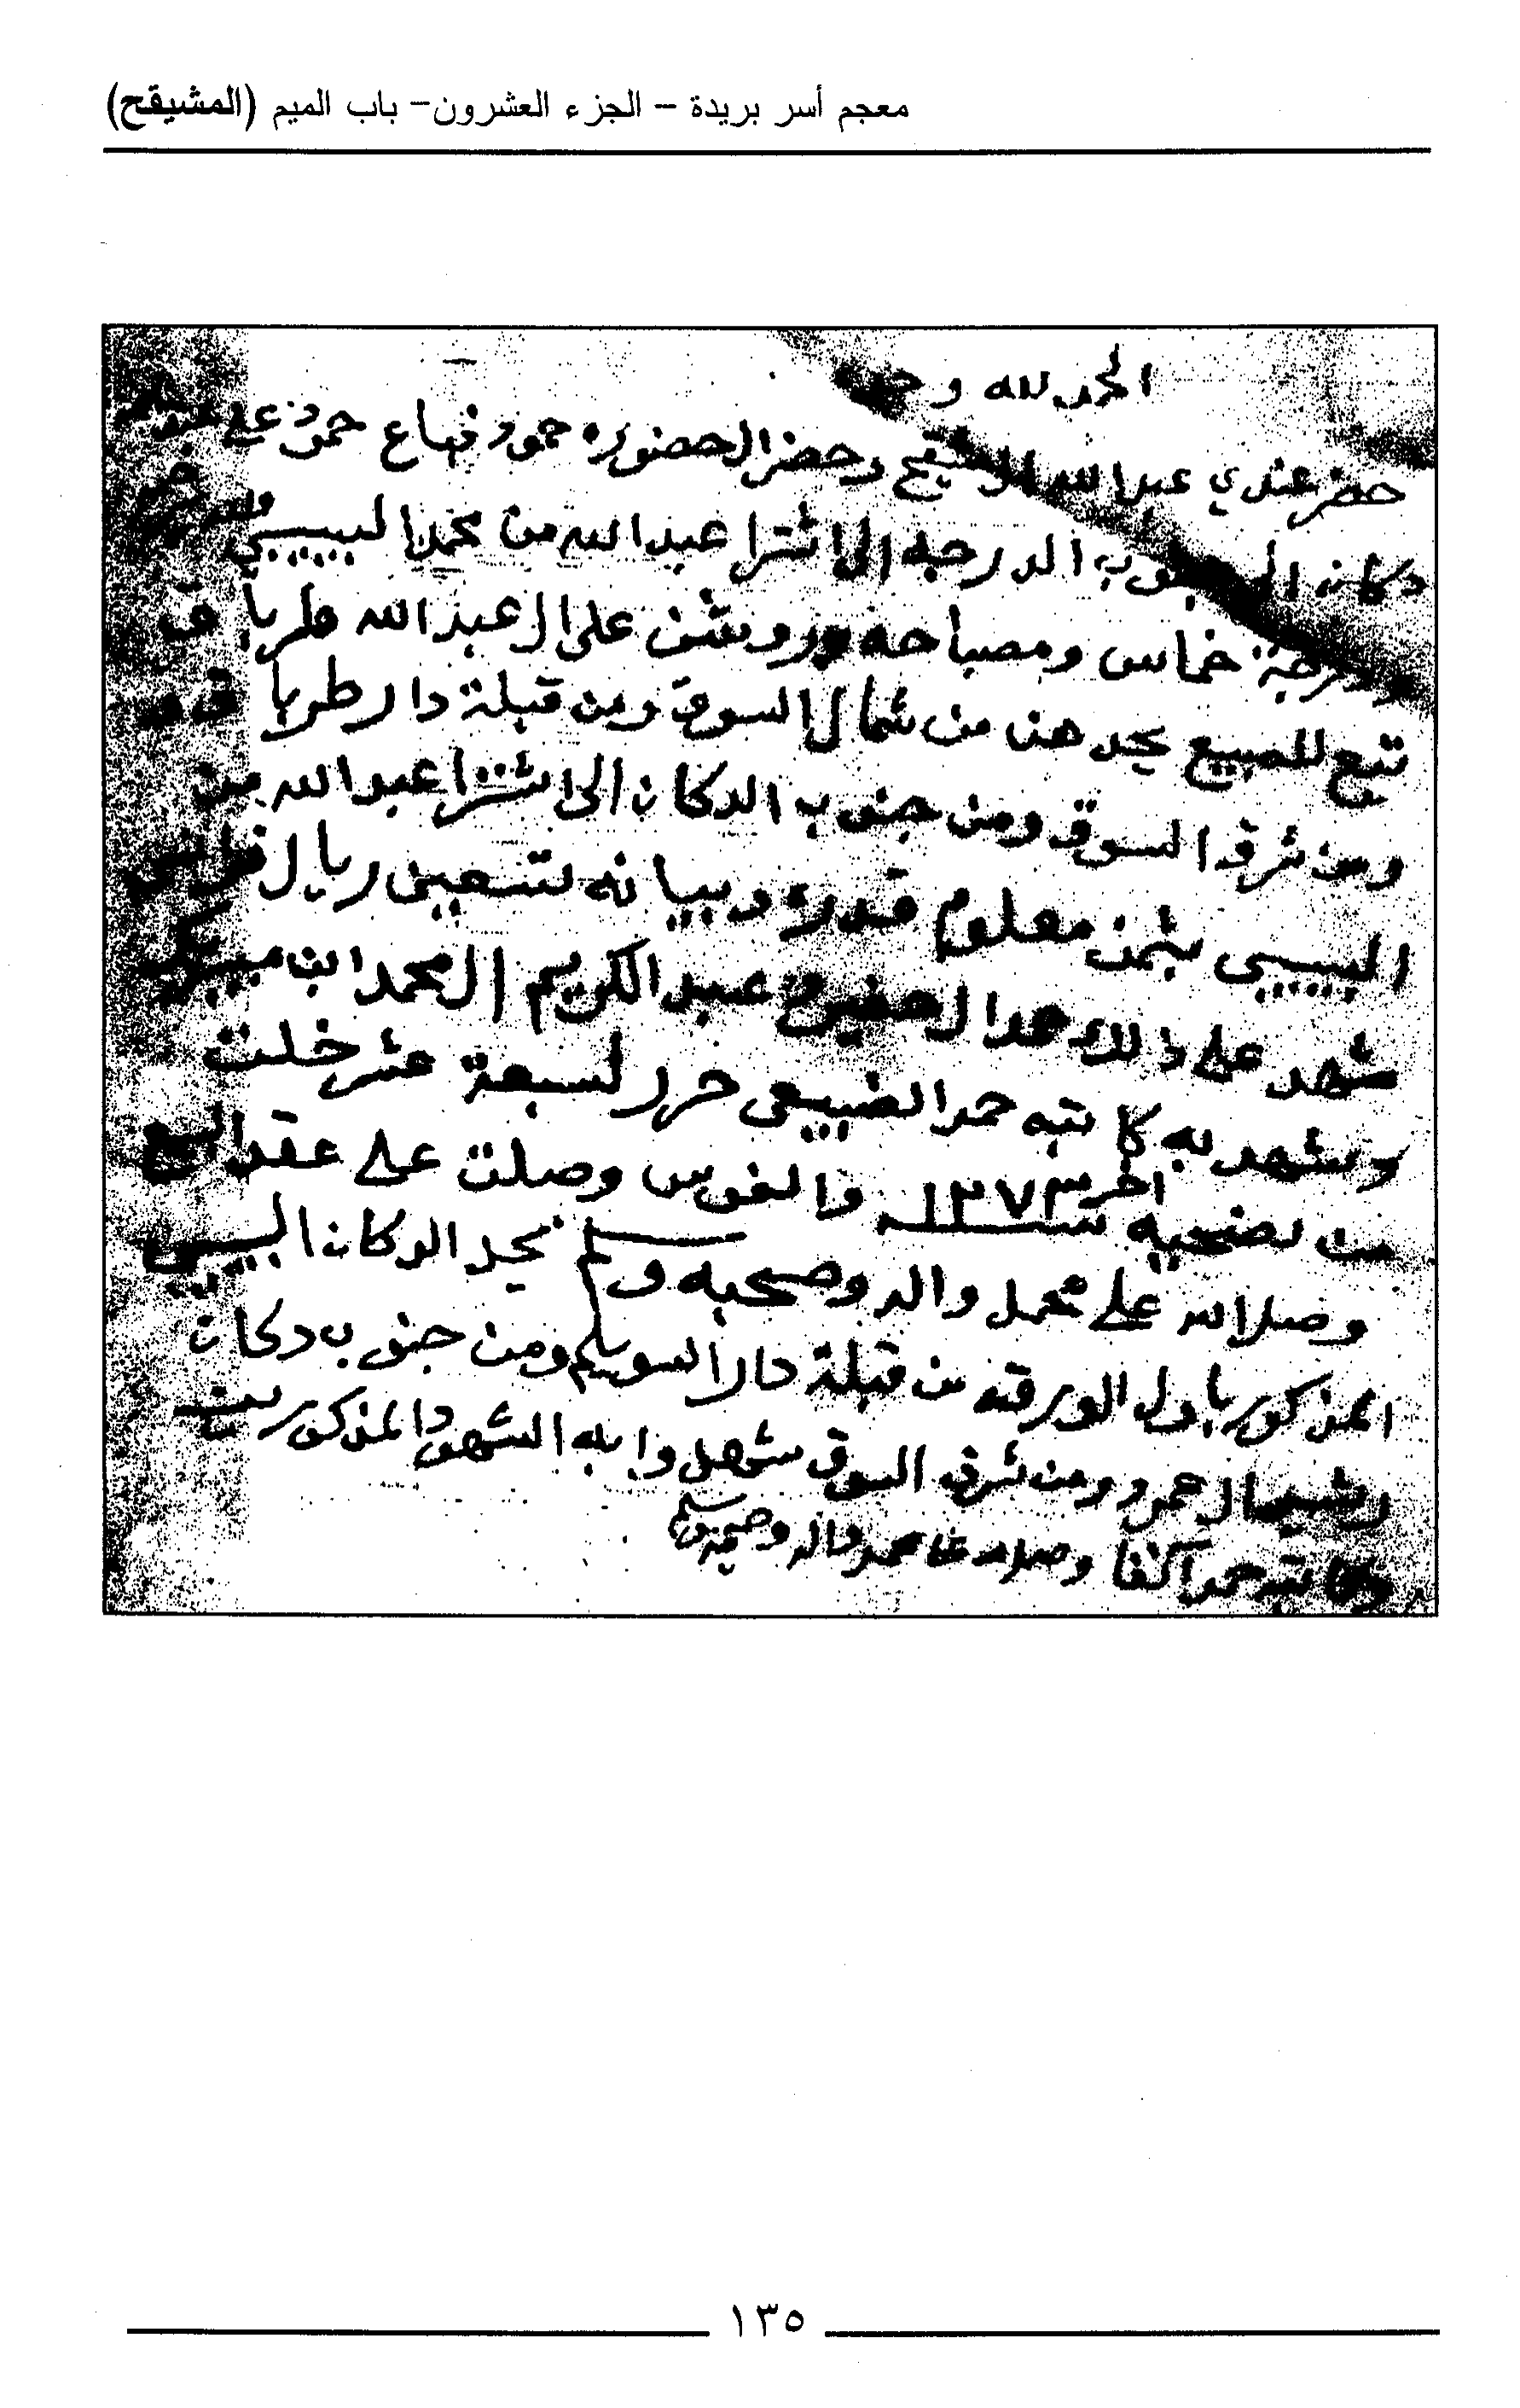 معجم أسر بريدة - الجزء العشرون- باب الميم (المشيقح)
الحمد لله وحده
حضر عندي عبدالله المشيقح وحضر الحضوره حمود فباع حمود على
دكان الدرجه الى اشترا عبدالله من محمد البييبي
خماس ومصباحه وروشن على ال عبدالله طريا ق
تبع للمبيع يحدهن من شمال السوق ومن قبلة دار طريا ق
ومن شرق السوق ومن جنوب الدكان الى اشترا عبدالله من
البييبي بثمن معلوم قدره وبيانه تسعين ريال
شهد على ذلك عبدالكريم المحمد ابن
وشهد به كاتبه حمد الضبيعي حرر لسبعة عشر خلت
من ضحيه اخر سنة ١٣٧٣ والفوس وصلت على عقد البيع
وصلا الله على محمد واله وصحبه وسلم يحد الدكان البييبي
المذكور باول الورقه من قبلة دار السويلم ومن جنوب دكان
ومن شرق السوق شهدوا به الشهود المذكورين
وكاتبه حمد وصلا الله على محمد واله وصحبه وسلم
١٣٥